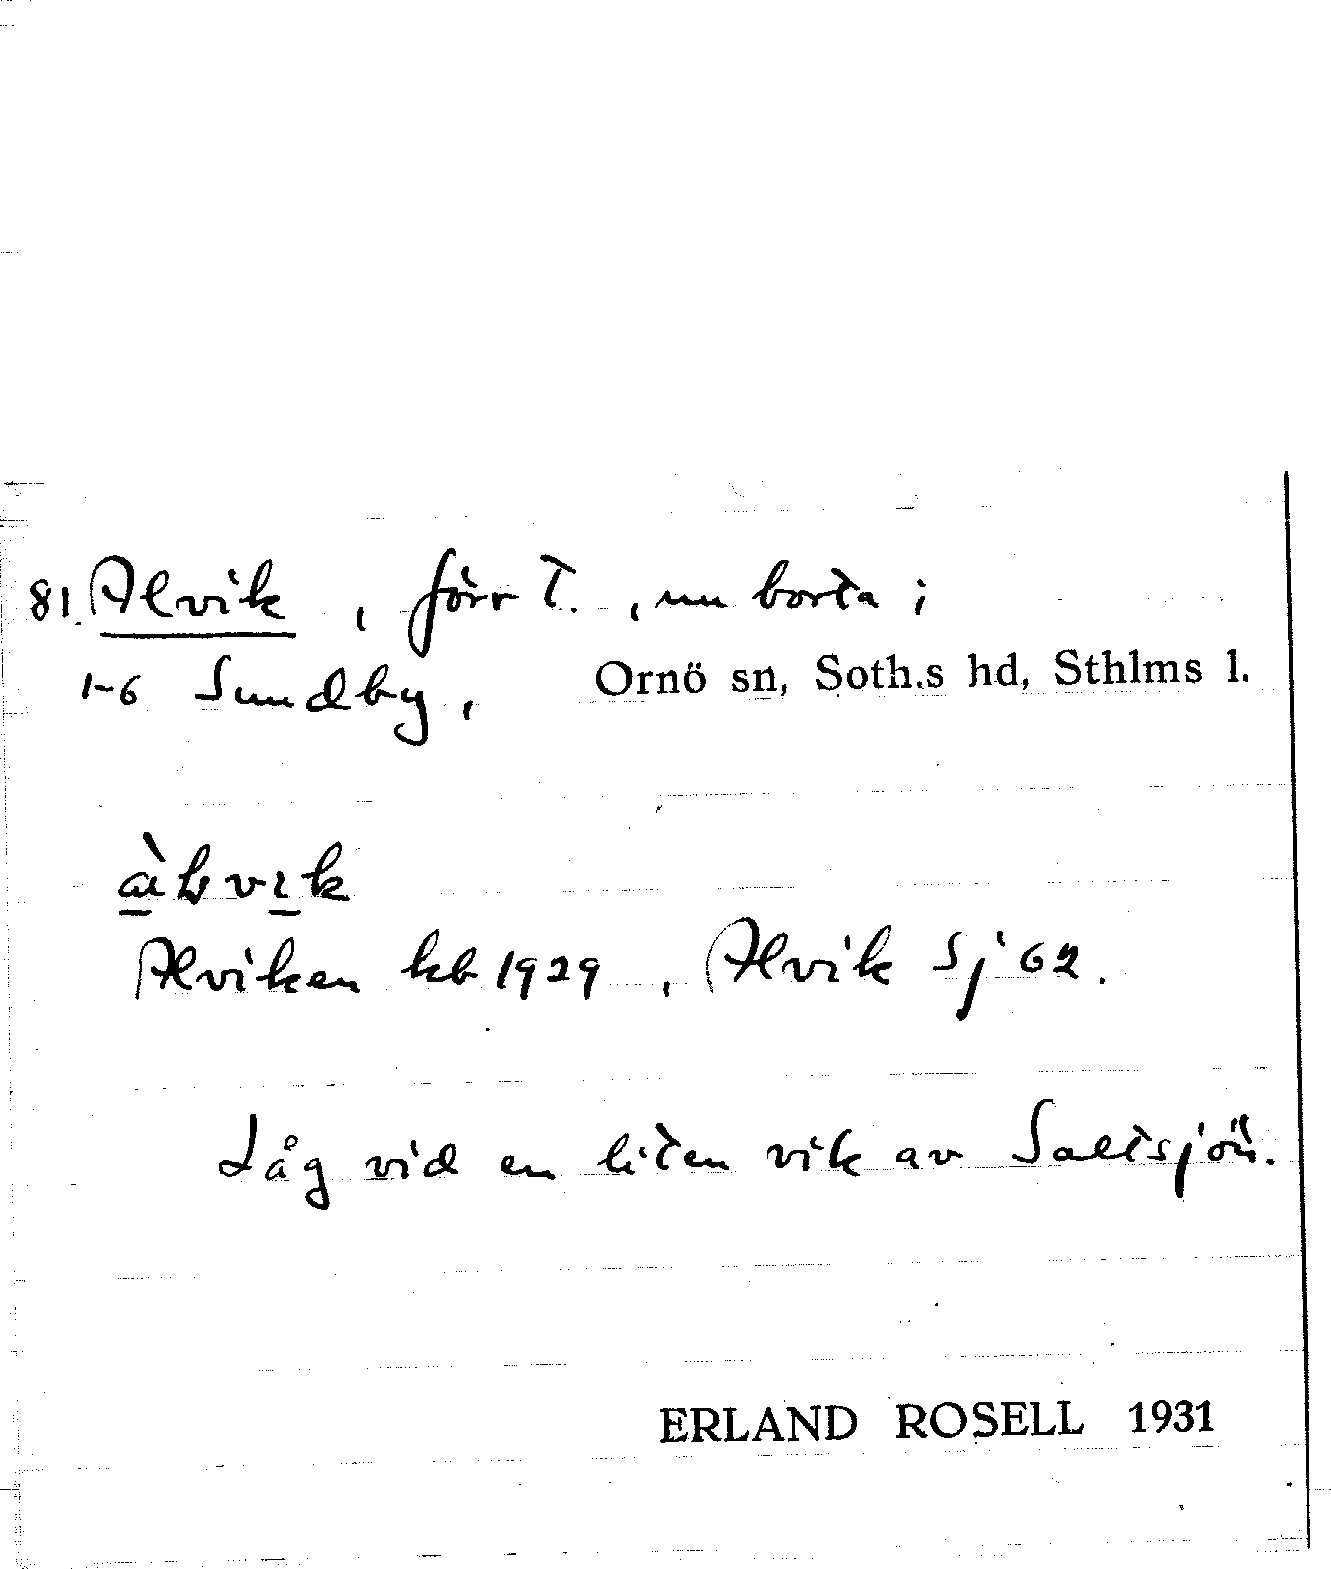 81. Alvik, förr T., nu borta;
1-6 Sundby, Ornö sn, Soth.s hd, Sthlms l.
Alviken kb 1929, Alvik Sj 62.
Låg vid en liten vik av Saltsjön.
ERLAND ROSELL 1931